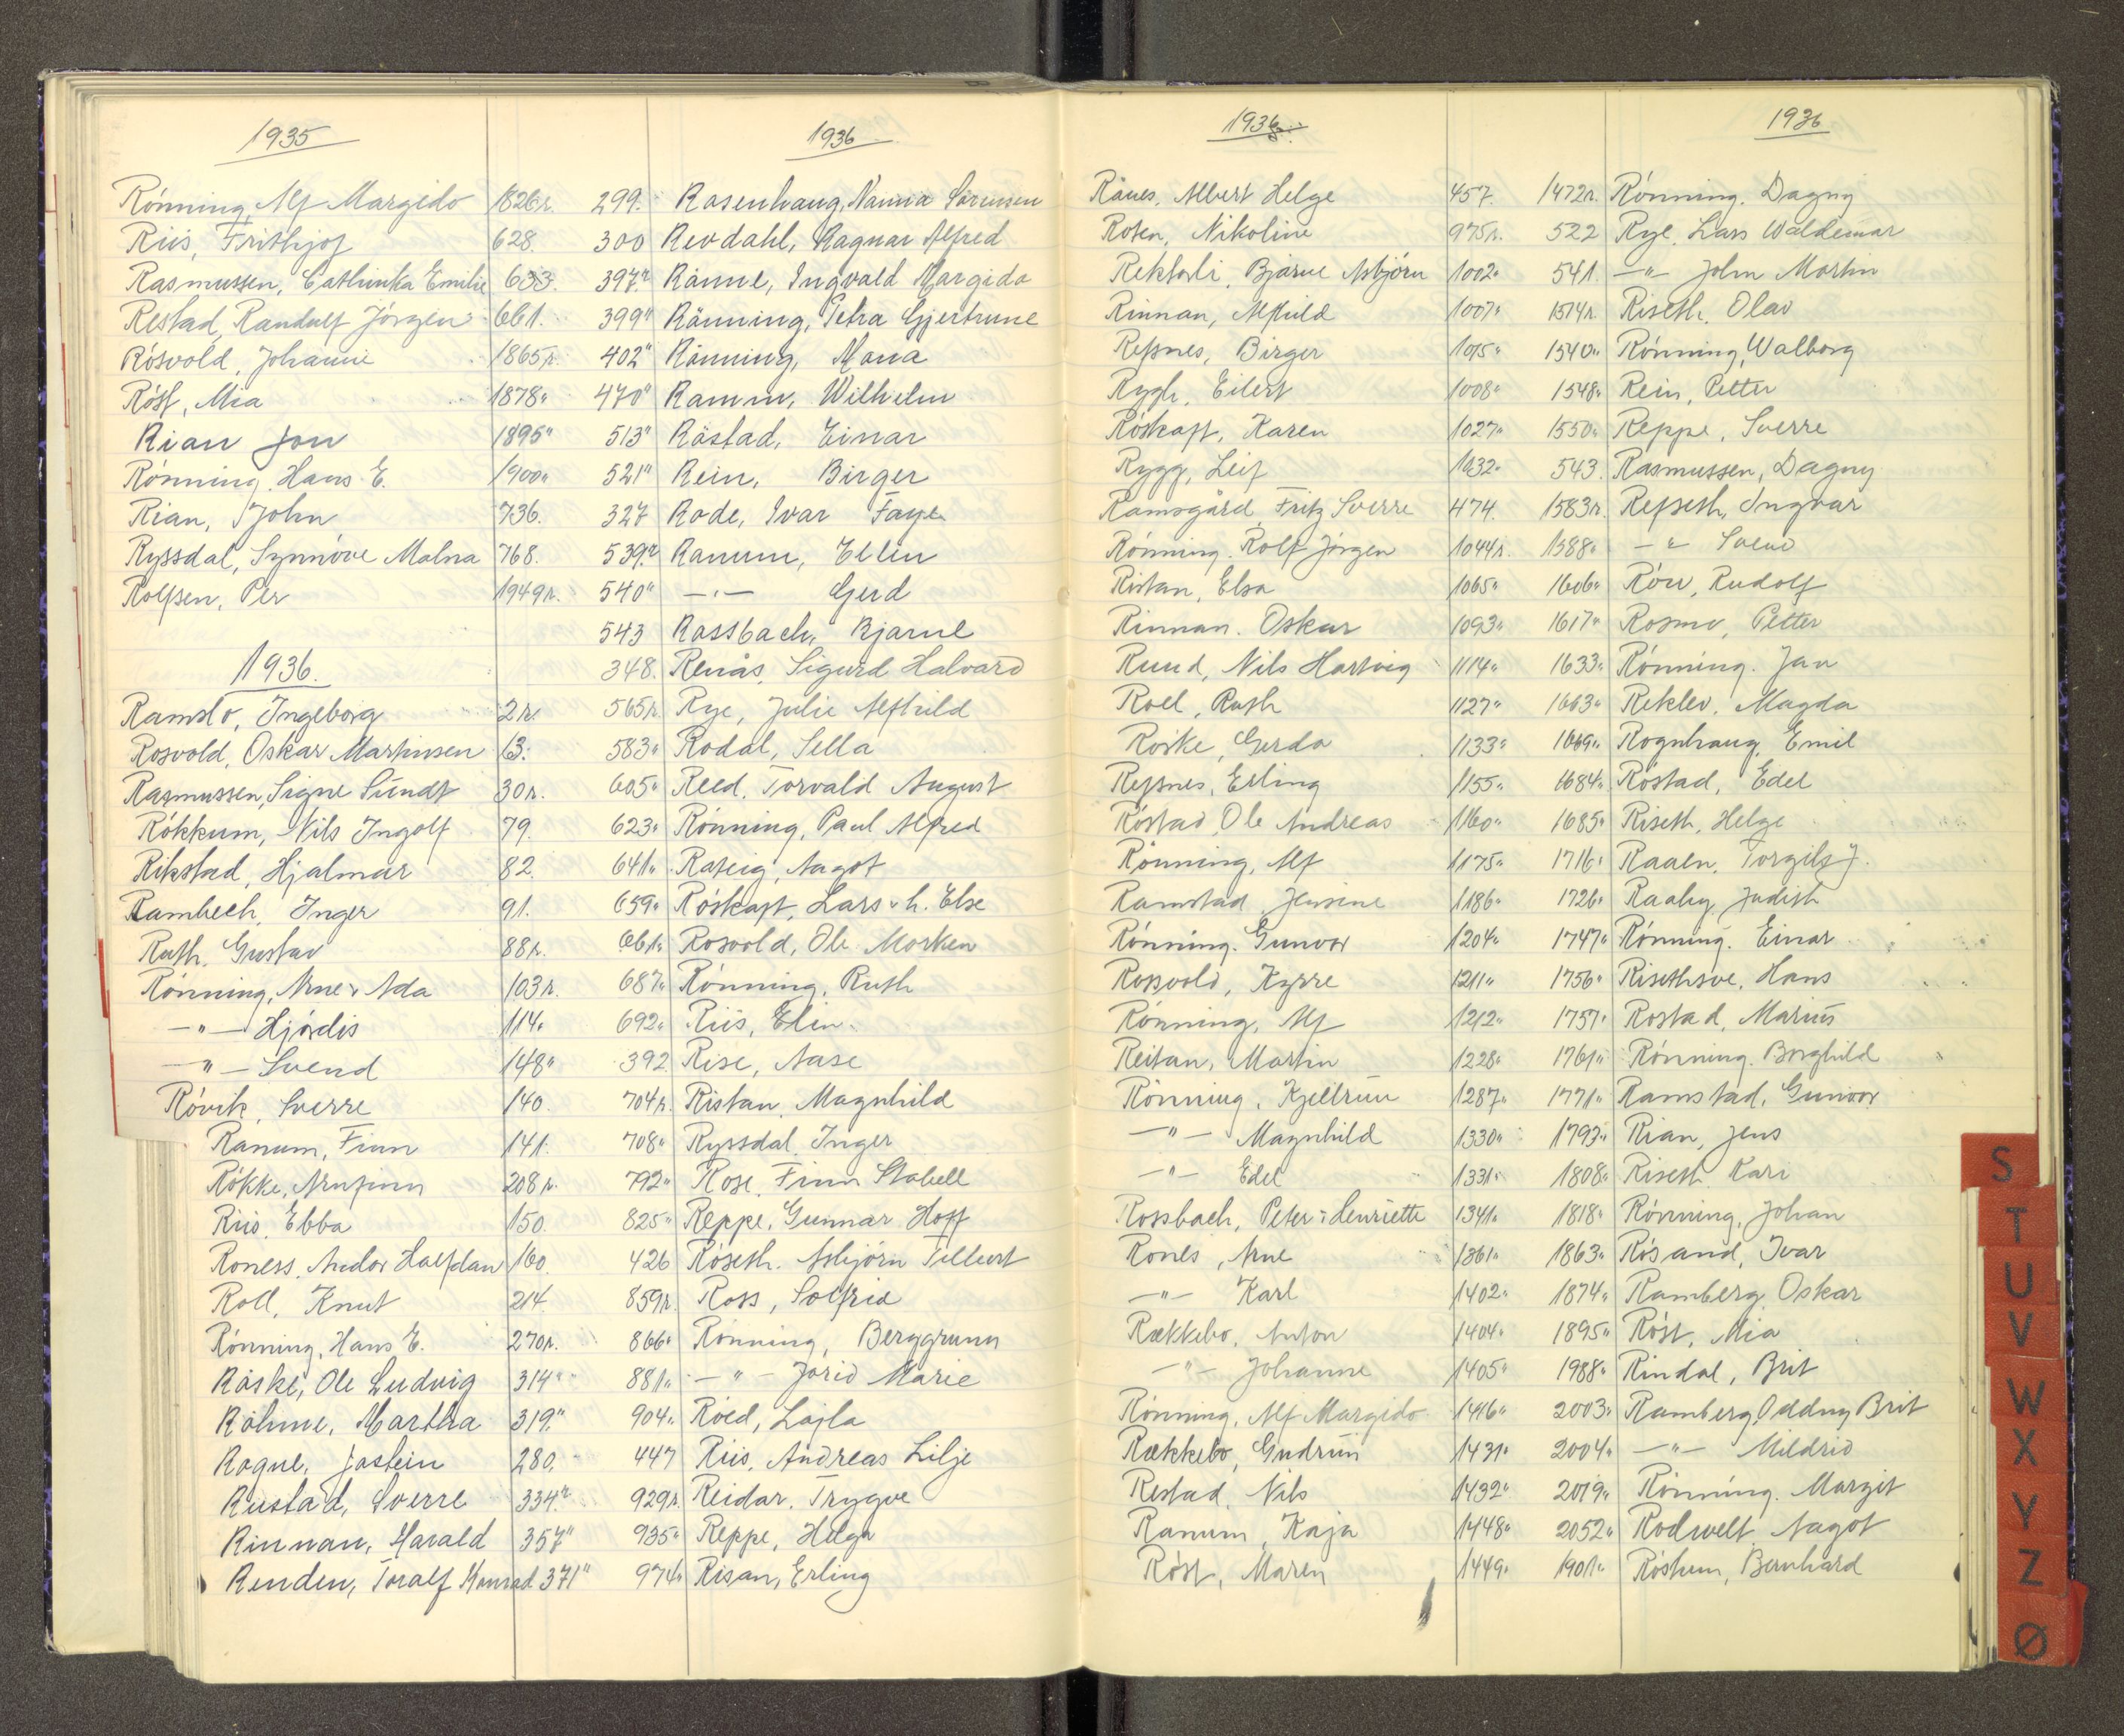 1935
Rönning, Alf Margido 1826r.
Riis, Frithjof 628.
Rasmussen, Cathinka Emilie 633.
Restad, Randulf Jörgen 661.
Rösvold, Johanne 1865r.
Röst, Mia 1878"
Rian Jon 1895"
Rönning, Hans E. 1900"
Rian, John 736.
Ryssdal, Synnöve Malna 768.
Rolfsen, Per 1949r.
1936.
Ramslo, Ingeborg 2r.
Rosvold, Oskar Martinsen 13.
Rasmussen, Signe Sundt 30r.
Rökkum, Nils Ingolf 79.
Rikstad, Hjalmar 82.
Rambech, Inger 91.
Ruth, Gustav 88r.
Rönning, Arne & Ada 103r.
—"— Hjördis 114"
—"— Svend 148"
Rövik, Sverre 140.
Ranum, Finn 141.
Rökke, Arnfinn 208r.
Riis, Ebba 150.
Roness, Andor Halfdan 160.
Roll, Knut 214.
Rönning, Hans E. 270r.
Röske, Ole Ludvig 314"
Röhme, Martha 319"
Rogne, Jostein 280.
Rustad, Sverre 334r
Rinnan, Harald 357"
Renden, Toralf Konrad 371"
1936
299. Rosenhaug, Nanna Sörensen
300 Revdahl, Ragnar Alfred
397r Rönne, Ingvald Margido
399" Rönning, Petra Gjertrune
402" Rönning, Mona
470" Ramm, Wilhelm
513" Röstad, Einar
521" Rein, Birger
327 Rode, Ivar Faye
539r Ranum, Ellin
540" —"— Gerd
543 Rossbach, Bjarne
348. Renås, Sigurd Halvard
565r. Rye, Julie Alfhild
583" Rodal, Sella
605" Reed, Torvald August
623" Rönning, Paul Alfred
641" Rateig, Aagot
659" Röskaft, Lars & h. Else
661" Rosvold, Ole Morken
687" Rönning, Ruth
692" Riis, Elin
392. Rise, Aase
704r. Ristan, Magnhild
708" Ryssdal, Inger
792" Rose, Finn Stabell
825" Reppe, Gunnar Hoff
426 Röseth, Asbjörn Tellert
859r. Ross, Solfrid
866" Rönning, Berggrunn
881" —"— Jorid Marie
904" Röed, Lajla
447 Riis, Andreas Lilje
929r. Reidar, Trygve
935" Reppe, Helga
974" Risan, Erling
1936
Rånes, Albert Helge 457.
Rosen, Nikoline 975r.
Rektorli, Bjarne Asbjörn 1002"
Rinnan, Alfhild 1007"
Refsnes, Birger 1015"
Rygh, Eilert 1008"
Röskaft, Karen 1027"
Rygg, Leif 1032"
Ramsgård, Fritz Sverre 474.
Rönning, Rolf Jörgen 1044r.
Ristan, Elsa 1065"
Rinnan, Oskar 1093"
Ruud, Nils Hartvig 1114"
Roel, Ruth 1127"
Roske, Gerda 1133"
Refsnes, Erling 1155"
Röstad, Ole Andreas 1160"
Rönning, Alf 1175"
Ramstad, Jensine 1186"
Rönning, Gunvor 1204"
Rossvold, Kyrre 1211"
Rönning, Alf 1212"
Reitan, Martin 1228"
Rönning, Kjellrun 1287"
—"— Magnhild 1330"
—"— Edel 1331"
Rossbach, Peter & Henriette 1341"
Rones, Arne 1361"
—"— Karl 1402"
Rækkebo, Anton 1404"
—"— Johanne 1405"
Rönning, Alf Margido 1416"
Rækkebo, Gudrun 1431"
Restad, Nils 1432"
Ranum, Kaja 1448"
Röst, Maren 1449"
1936
1472r. Rönning, Dagny
522 Rye, Lars Waldemar
541. —"— John Martin
1514r. Riseth, Olav
1540" Rönning, Walborg
1548" Rein, Petter
1550" Reppe, Sverre
543. Rasmussen, Dagny
1583r. Refseth, Ingvar
1588" —"— Svend
1606" Röw, Rudolf
1617" Rosmo, Petter
1633" Rönning, Jan
1663" Reklev, Magda
1669" Rognhaug, Emil
1684" Röstad, Edel
1685" Riseth, Helge
1716" Raaen, Torgils J.
1726" Raaby, Judith
1747" Rönning, Einar
1756" Risethsve, Hans
1757" Rostad, Marius
1761" Rönning, Borghild
1771" Ramstad, Gunvor
1793" Rian, Jens
1808" Riseth, Kari
1818" Rönning, Johan
1863" Rösand, Ivar
1874" Ramberg, Oskar
1895" Röst, Mia
1988" Rindal, Brit
2003" Ramberg, Oddny Brit
2004" —"— Mildrid
2019" Rönning, Margit
2052" Rodwelt, Aagot
1901" Röshum, Bernhard
S
T
U
V
W
X
Y
Z
Ø